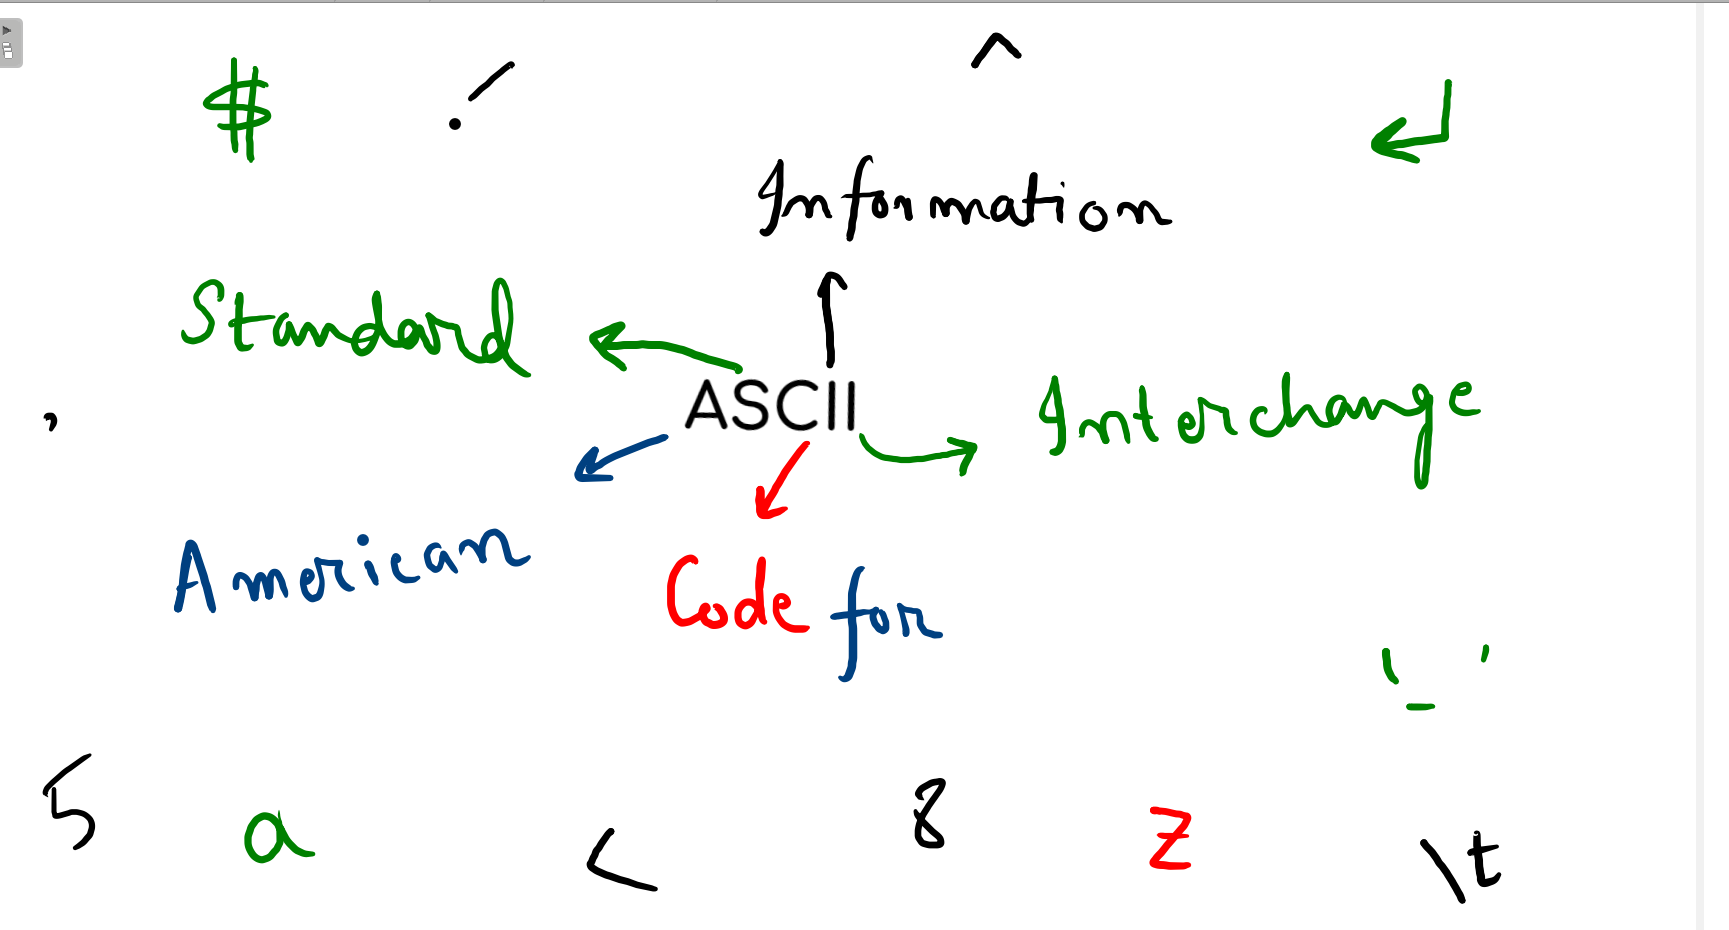 $ ! ^ ↵
Information
Standard
ASCII
,
Interchange
American
Code for
'_'
5 a < 8 z \t